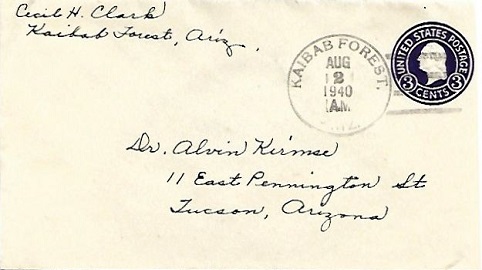 Cecil H. Clark
Kaibab Forest, Ariz.
KAIBAB FOREST.
AUG
2
1940
A.M.
ARIZ.
UNITED STATES POSTAGE
3 CENTS 3
Dr. Alvin Kirmse
11 East Pennington St
Tucson, Arizona